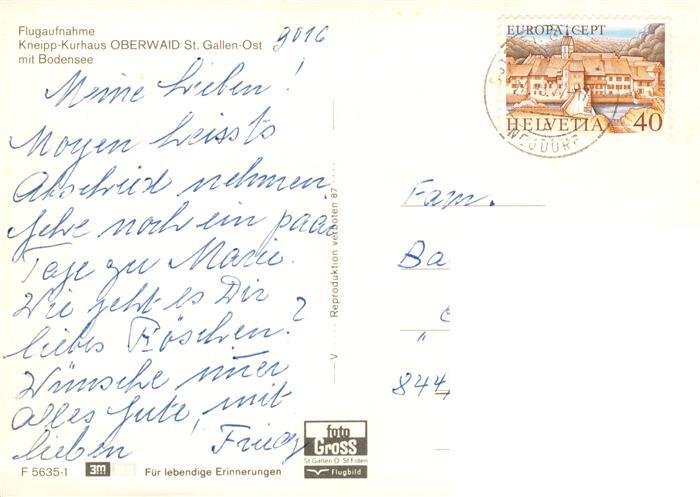 Flugaufnahme
Kneipp-Kurhaus OBERWAID St. Gallen-Ost
mit Bodensee
9016
EUROPA CEPT
HELVETIA 40
NEUDORF
Meine Lieben!
Morgen heissts
Abschied nehmen
gehe noch ein paar
Tage zu Marie.
Wie geht es Dir
liebes Röschen?
Wünsche imer
alles Gute, mit
lieben
Fam.
Ba
"
844
V Reproduktion verboten 87
foto
Gross
St.Gallen O St.Fiden
Flugbild
F 5635-1 3m Für lebendige Erinnerungen